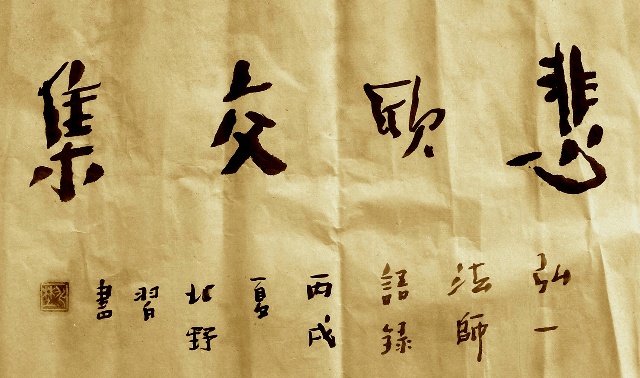 悲欣交集
弘一
法師
語錄
丙戌
夏
北野
習
書